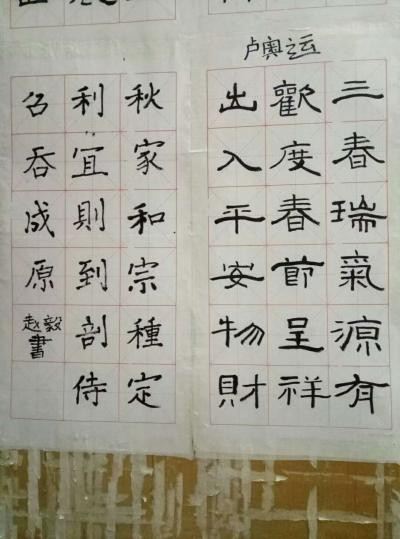 卢奥运
三春瑞氣源有
歡度春節呈祥
出入平安物財
秋家和宗種定
利宜則到剖侍
召吞成原
赵毅書